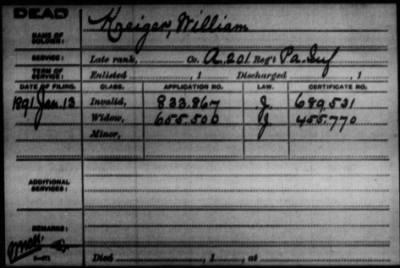 DEAD
NAME OF SOLDIER: Kreiger, William
SERVICE: Late rank, Co. A. 201. Reg't Pa. Inf
TERM OF SERVICE: Enlisted , 1 Discharged , 1
DATE OF FILING. CLASS. APPLICATION NO. LAW. CERTIFICATE NO.
1891 Jan. 13 Invalid, 833.867 J. 689.531
Widow, 655.500 J 455.770
Minor,
ADDITIONAL SERVICES:
REMARKS:
Died , 1 , at